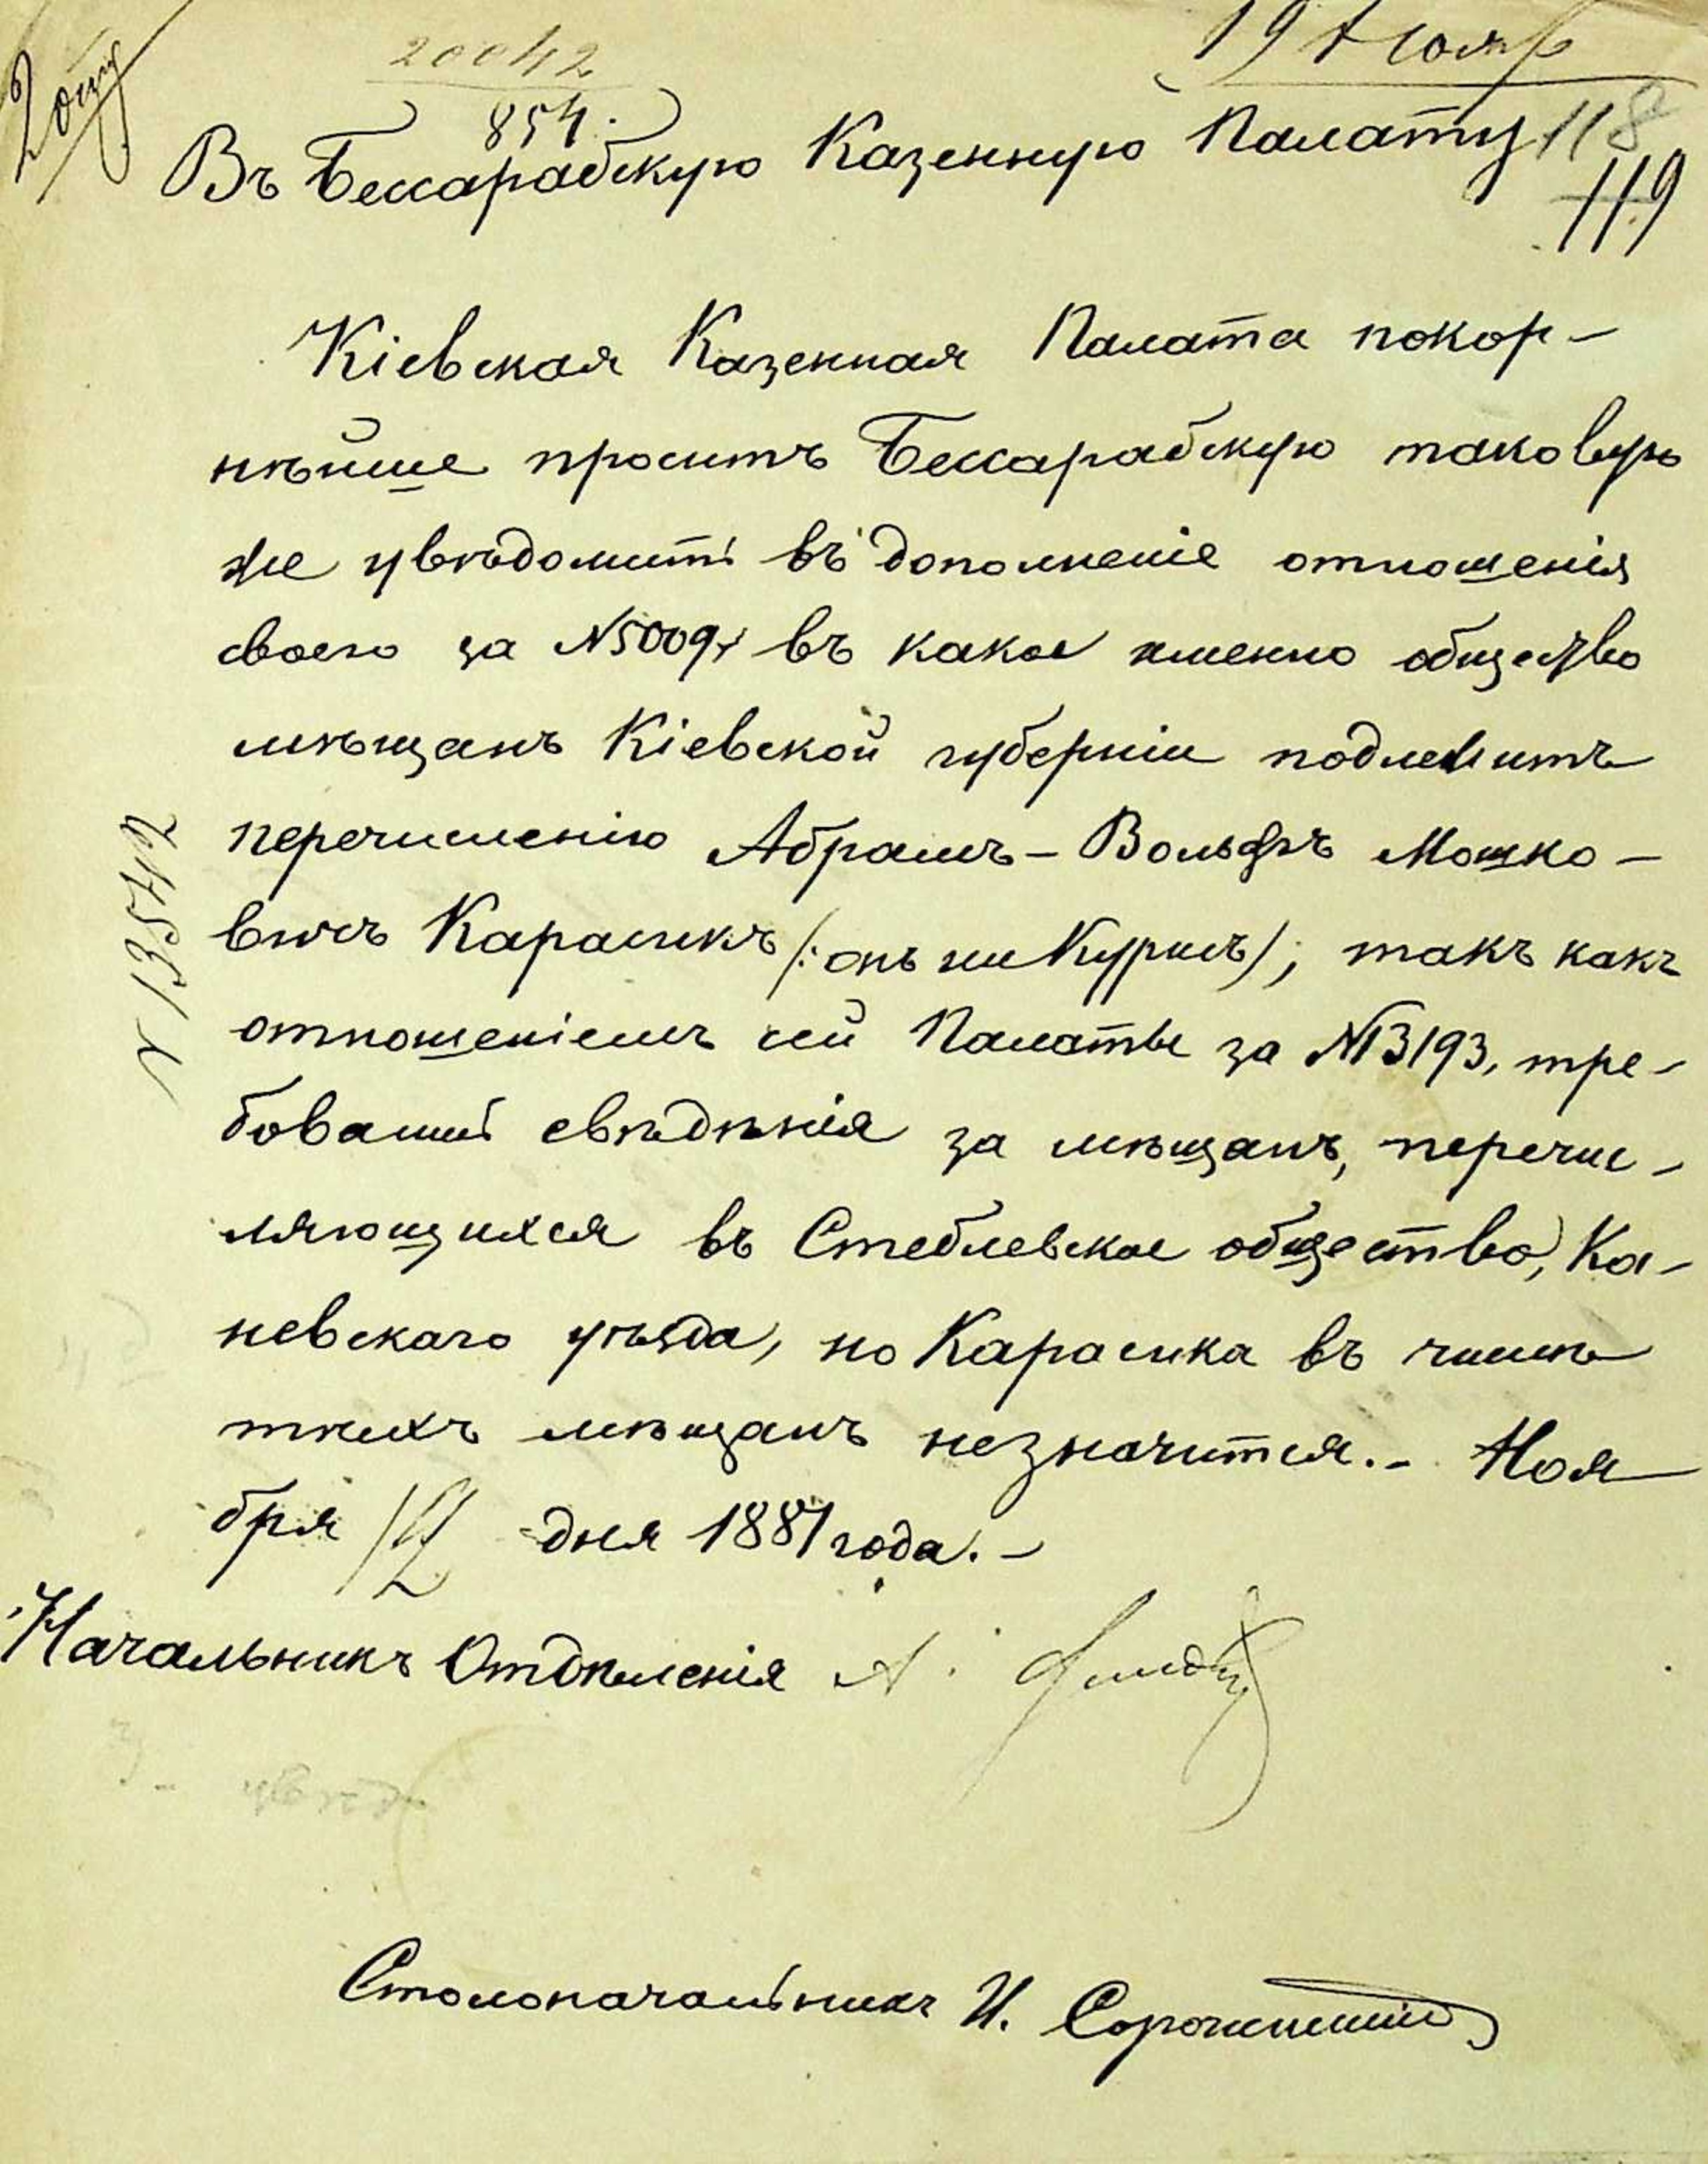 19 Нояб
20042
854.
118
Въ Бессарабскую Казенную Палату
119
Кіевская Казенная Палата покор-
нѣйше проситъ Бессарабскую таковую
же увѣдомить въ дополненіе отношенія
своего за №5009, въ какое именно общество
мѣщанъ Кіевской губерніи подлежитъ
перечисленію Абрамъ-Вольфъ Мошко-
вичъ Карасикъ (:онъ же Курисъ); такъ какъ
отношеніемъ сей Палаты за №13193, тре-
бовались свѣдѣнія за мѣщанъ, перечис-
ляющихся въ Стеблевское общество, Ка-
невскаго уѣзда, но Карасика въ числѣ
тѣхъ мѣщанъ незначится.- Ноя
бря 12 дня 1881 года.-
№ 13542
Начальникъ Отдѣленія А.
Столоначальникъ И.